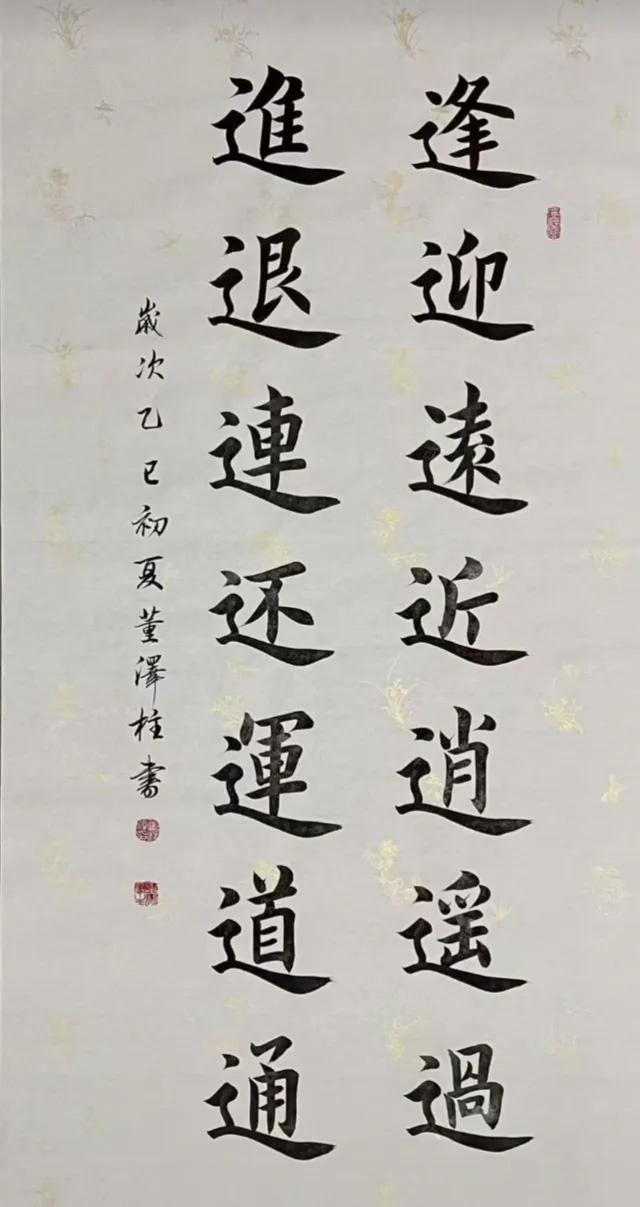 逢迎遠近逍遥過
進退連还運道通
歲次乙巳初夏董澤柱書